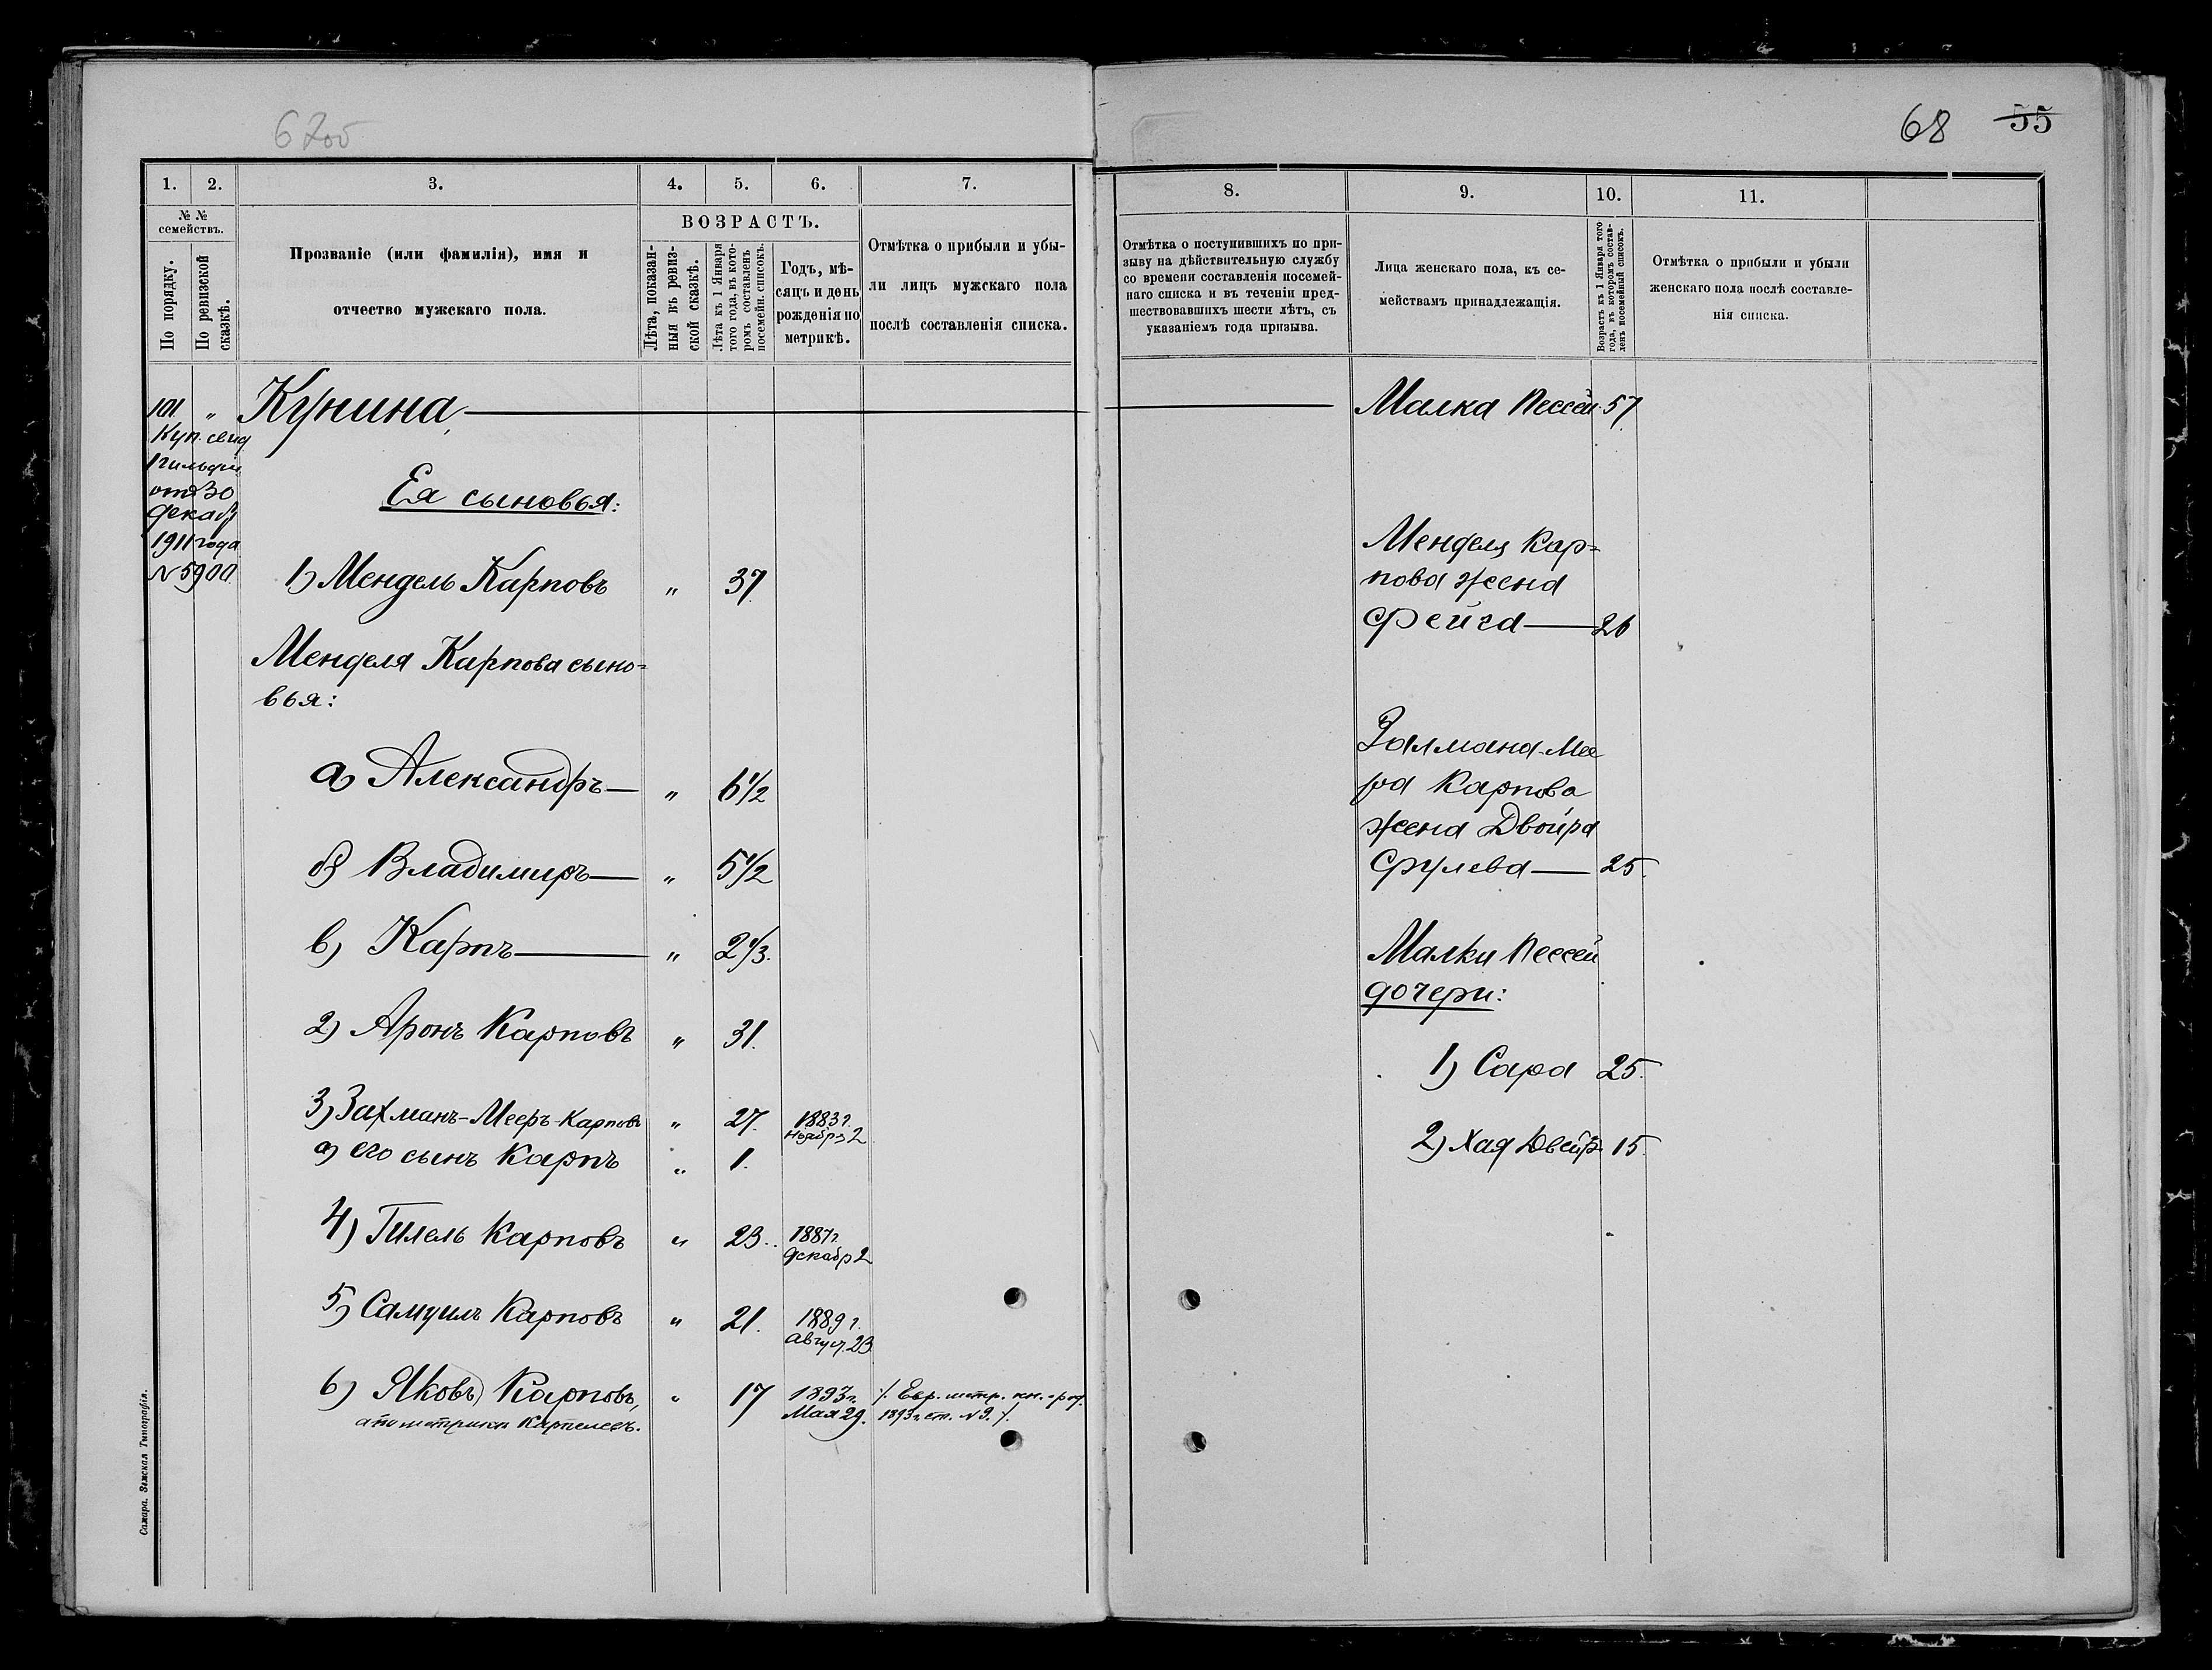 67об
68 55
1. 2. 3. 4. 5. 6. 7.
8. 9. 10. 11.
№ №
семействъ.
По порядку.
По ревизской
сказкѣ.
Прозваніе (или фамилія), имя и
отчество мужскаго пола.
ВОЗРАСТЪ.
Лѣта, показан-
ныя въ ревиз-
ской сказкѣ.
Лѣта къ 1 Января
того года, въ кото-
ромъ составленъ
посемейн. списокъ.
Годъ, мѣ-
сяцъ и день
рожденія по
метрикѣ.
Отмѣтка о прибыли и убы-
ли лицъ мужскаго пола
послѣ составленія списка.
Отмѣтка о поступившихъ по при-
зыву на дѣйствительную службу
со времени составленія посемей-
наго списка и въ теченіи пред-
шествовавшихъ шести лѣтъ, съ
указаніемъ года призыва.
Лица женскаго пола, къ се-
мействамъ принадлежащія.
Возрастъ къ 1 Января того
года, въ которомъ состав-
ленъ посемейный списокъ.
Отмѣтка о прибыли и убыли
женскаго пола послѣ составле-
нія списка.
101 " Кунина
Куп. свид
1 гильдіи
отъ 30
декаб
1911 года
N 5900.
Ея сыновья:
1) Мендель Карповъ " 37
Менделя Карпова сыно-
вья:
а) Александръ " 6 1/2
б) Владимиръ " 5 1/2
в) Карпъ " 2 1/3.
2) Аронъ Карповъ " 31.
3) Залманъ-Мееръ-Карповъ " 27. 1883 г.
Ноября 2
а) его сынъ Карпъ " 1.
4) Гилель Карповъ " 23. 1887 г.
декабр 2
5) Самуилъ Карповъ " 21. 1889 г.
Август. 23
6) Яковъ) Карповъ, " 17 1893 г. /. Евр. метр. кн. о род.
а по метрикѣ Карпелевъ. Мая 29. 1893 г. ст. N 9. /.
Малка Пессей 57
Менделя Кар-
пова жена
Фейга 26
Залмана-Мее
ра Карпова
жена Двойра
Срулева 25.
Малки Пессей
дочери:
1) Сара 25.
2) Хая Двейр. 15.
Самара. Земская Типографія.